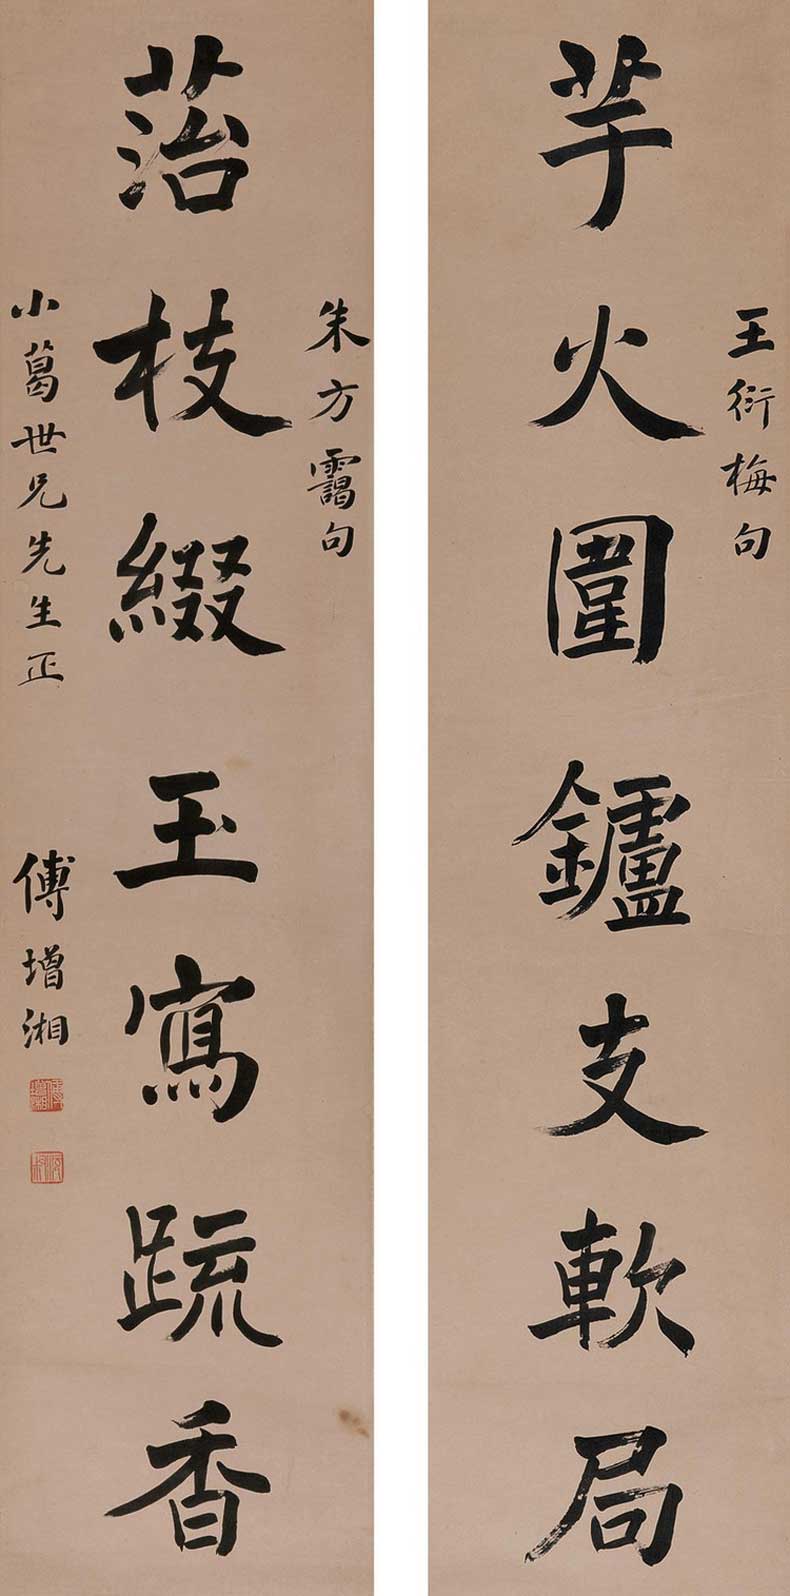 王衍梅句
芋火圍鑪支軟局
朱方靄句
菭枝綴玉寫疏香
小葛世兄先生正 傅增湘